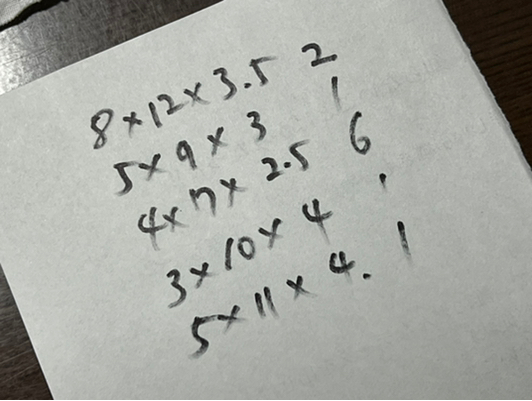 8×12×3.5 2
5×9×3 1
4×7×2.5 6
3×10×4
5×11×4. 1